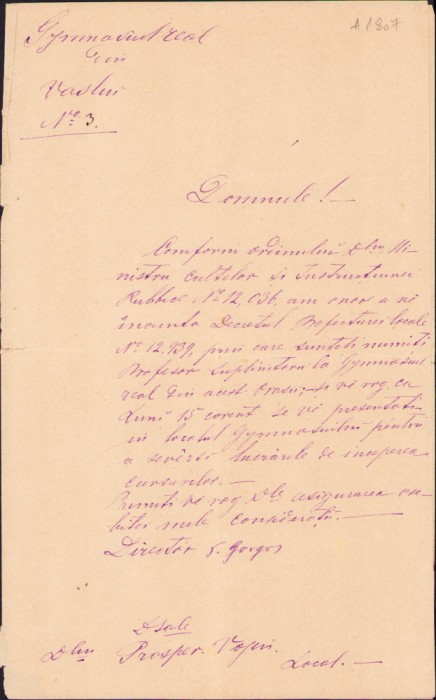 A 1807
Gymnasiul real
din
Vaslui
No. 3.
Domnule! —
Comform ordinului Dlui Mi-
nistru Cultelor si Instructiunei
Publice No 12,036, am onor a ve
inainta Decretul Prefecturei locale
No 12,939, prin care sunteti numiti
Profesor Suplinitoru la Gymnasiul
real din acest orasiu; si ve rog ca
Luni 15 corent se ve presentati
in localul Gymnasiului pentru
a sevêrsi lucrările de inceperea
cursurilor. —
Primiti ve rog Dle asigurarea
mele consideratii. —
Director S. Gorgos
Dsale
Dlui Prosper
Local. —